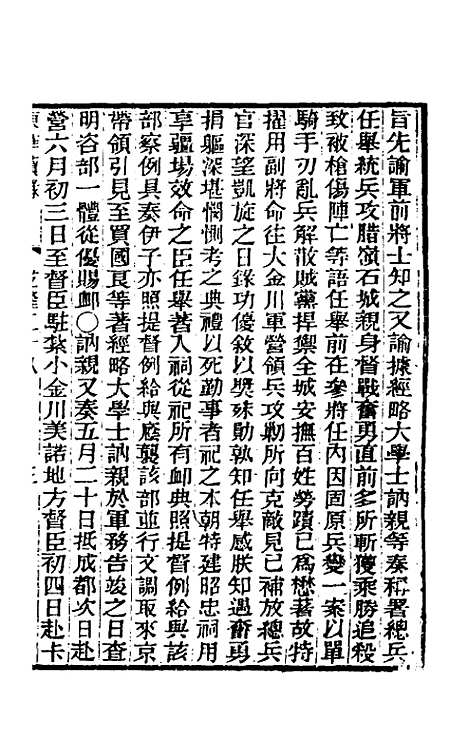 旨先諭軍前將士知之又諭據經略大學士訥親等奏稱署總兵
任舉統兵攻腊嶺石城親身督戰奮勇直前多所斬獲乘勝追殺
致被槍傷陣亡等語任舉前在參將任內因固原兵變一案以單
騎手刃亂兵解散賊黨捍禦全城安撫百姓勞蹟已爲懋著故特
擢用副將命往大金川軍營領兵攻勦所向克敵見已補放總兵
官深望凱旋之日錄功優敘以奬殊勛孰知任舉感朕知遇奮勇
捐軀深堪憫惻考之典禮以死勤事者祀之本朝特建昭忠祠用
享疆場效命之臣任舉著入祠從祀所有卹典照提督例給與該
部察例具奏伊子亦照提督例給與廕襲該部並行文調取來京
帶領引見至買國良等著經略大學士訥親於軍務告竣之日查
明咨部一體從優賜卹○訥親又奏五月二十日抵成都次日赴
營六月初三日至督臣駐紮小金川美諾地方督臣初四日赴卡
東華續錄